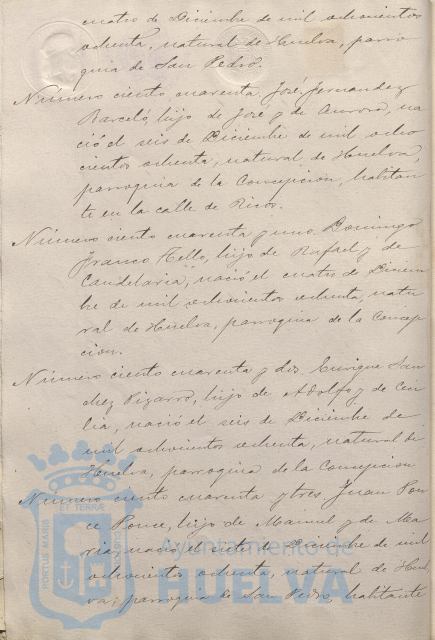 cuatro de Diciembre de mil ochocientos
ochenta, natural de Huelva, parro
quia de San Pedro.
Número ciento cuarenta José Fernandez
Barceló, hijo de José y de Aurora, na
ció el seis de Diciembre de mil ocho
cientos ochenta, natural de Huelva,
parroquia de la Concepcion, habitan
te en la calle de Ricos.
Número ciento cuarenta y uno Domingo
Franco Tello, hijo de Rafael y de
Candelaria, nació el cuatro de Diciem
bre de mil ochocientos ochenta, natu
ral de Huelva, parroquia de la Concep
cion.
Número ciento cuarenta y dos Enrique San
chez Pizarro, hijo de Adolfo y de Ceci
lia, nació el seis de Diciembre de
mil ochocientos ochenta, natural de
Huelva, parroquia de la Concepcion
Número ciento cuarenta y tres Juan Pon
ce Ponce, hijo de Manuel y de Ma
ria, nació el siete de Diciembre de mil
ochocientos ochenta, natural de Huel
va, parroquia de San Pedro, habitante
PORTUS MARIS
ET TERRÆ
Ayuntamiento de
HUELVA